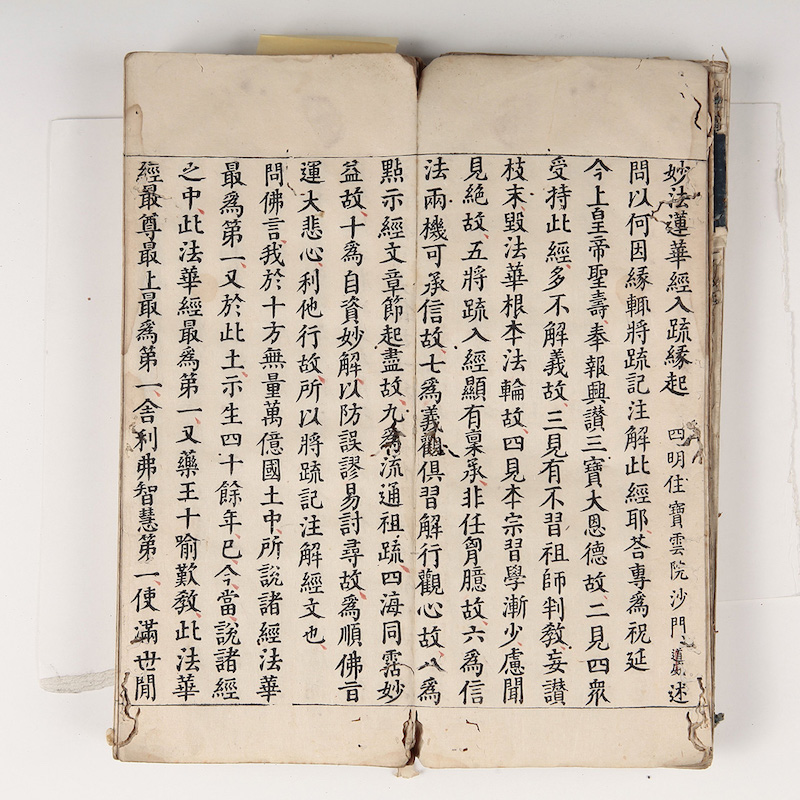 妙法蓮華經入疏緣起 四明住寶雲院沙門道威述
問以何因緣輒將疏記注解此經耶荅專爲祝延
今上皇帝聖壽奉報興讃三寶大恩德故二見四衆
受持此經多不解義故三見有不習祖師判敎妄讃
枝末毀法華根本法輪故四見本宗習學漸少慮聞
見絶故五將疏入經顯有稟承非任胷臆故六爲信
法兩機可承信故七爲義觀俱習解行觀心故八爲
點示經文章節起盡故九爲流通祖疏四海同霑妙
益故十爲自資妙解以防誤謬易討尋故爲順佛旨
運大悲心利他行故所以將疏記注解經文也
問佛言我於十方無量萬億國土中所說諸經法華
最爲第一又於此土示生四十餘年已今當說諸經
之中此法華經最爲第一又藥王十喻歎敎此法華
經最尊最上最爲第一舍利弗智慧第一使滿世間